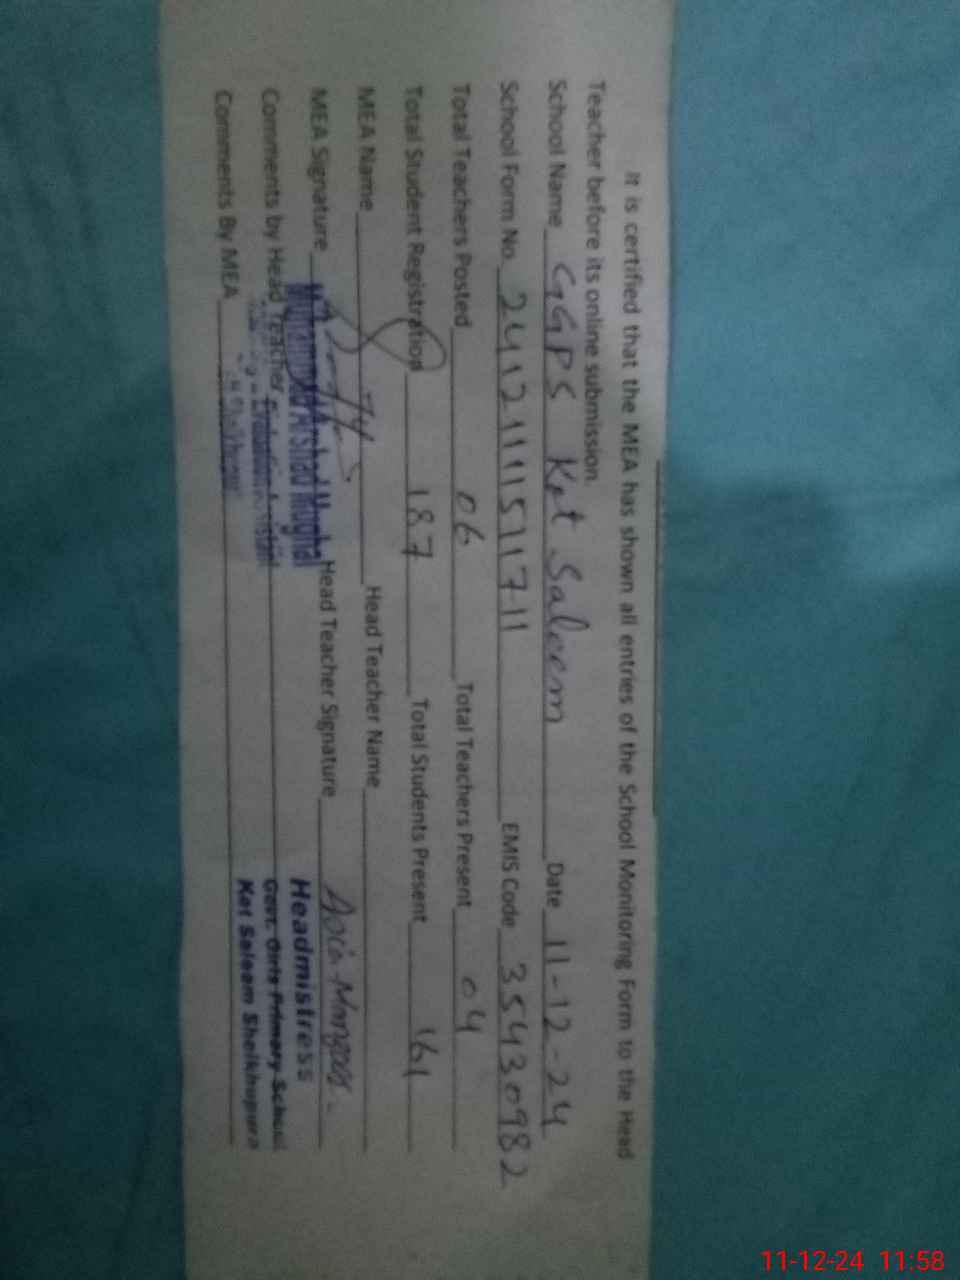 It is certified that the MEA has shown all entries of the School Monitoring Form to the Head
Teacher before its online submission.
School Name GGPS Kot Saleem Date 11-12-24
School Form No. EMIS Code 35430982
Total Teachers Posted 06 Total Teachers Present 04
Total Student Registration 187 Total Students Present 161
MEA Name Head Teacher Name
MEA Signature Head Teacher Signature Asia
Muhammad Arshad Mughal
Headmistress
Comments by Head Teacher
Govt. Girls Primary School
Comments By MEA
Kot Saleem Sheikhupura
11-12-24 11:58